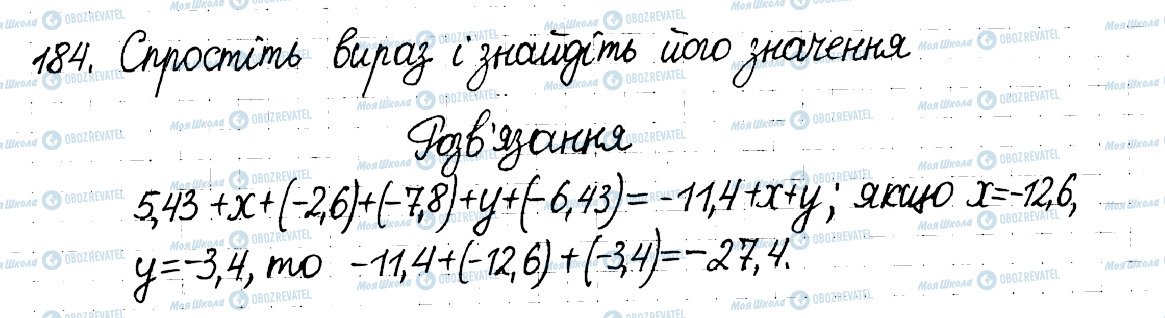 184. Спростіть вираз і знайдіть його значення
Розв'язання
5,43 + x + (-2,6) + (-7,8) + y + (-6,43) = -11,4 + x + y; якщо x = -12,6,
y = -3,4, то -11,4 + (-12,6) + (-3,4) = -27,4.